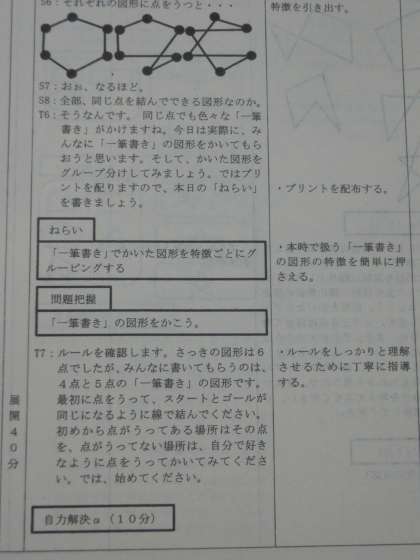 S6：それぞれの図形に点をうつと・・・
S7：おぉ、なるほど。
S8：全部、同じ点を結んでできる図形なのか。
T6：そうなんです。同じ点でも色々な「一筆
書き」がかけますね。今日は実際に、み
んなに「一筆書き」の図形をかいてもら
おうと思います。そして、かいた図形を
グループ分けしてみましょう。ではプリ
ントを配りますので、本日の「ねらい」
を書きましょう。
ねらい
「一筆書き」でかいた図形を特徴ごとにグ
ルーピングする
問題把握
「一筆書き」の図形をかこう。
T7：ルールを確認します。さっきの図形は６
点でしたが、みんなに書いてもらうのは、
４点と５点の「一筆書き」の図形です。
最初に点をうって、スタートとゴールが
同じになるように線で結んでください。
初めから点がうってある場所はその点
を、点がうってない場所は、自分で好き
なように点をうってかいてみてくださ
い。では、始めてください。
自力解決α（１０分）
展開４０分
特徴を引き出す。
・プリントを配布する。
・本時で扱う「一筆書き」
の図形の特徴を簡単に押
さえる。
・ルールをしっかりと理解
させるために丁寧に指導
する。